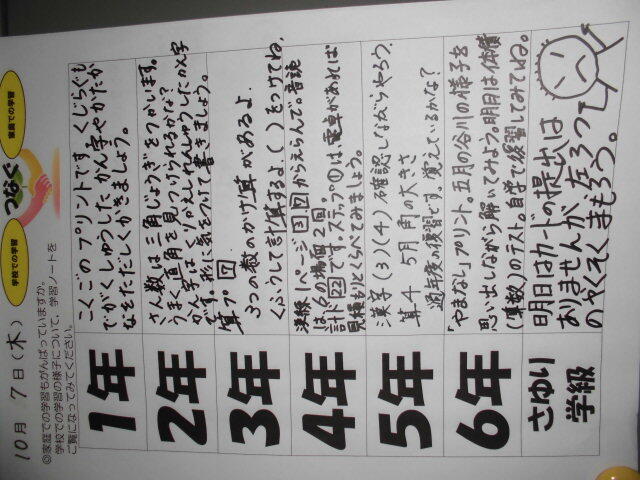 10月 7日(木)
学校での学習
つなぐ
家庭での学習
◎家庭での学習もがんばっていますか。
学校での学習の様子について、学習ノートを
ご覧になってみてください。
1年
こくごのプリントです。くじらぐも
でがくしゅうした かん字や かたか
なを ただしく かきましょう。
2年
さん数は三角じょうぎをつかいます。
うまく直角を見つけられるかな?
かん字はくりかえしれんしゅうしたかん字
です。形に気をつけて書きましょう。
3年
算プ 17
3つの数のかけ算があるよ。
くふうして計算するよ。( )をつけてね。
4年
は、1・6の場面 2回
計ド22です。ステップ①は、電卓があれば
見積もりとくらべてみましょう。
5年
漢字(3)(4)確認しながらやろう。
算4 5月 角の大きさ
の復習です。覚えているかな?
6年
「やまなし」プリント。五月の谷川の様子を
思い出しながら解いてみよう。明日は体積
(算数)のテスト。自学で復習してみてね。
さゆり
学級
明日はカードの提出は
ありませんが、左ろう
のやくそくまもろう。